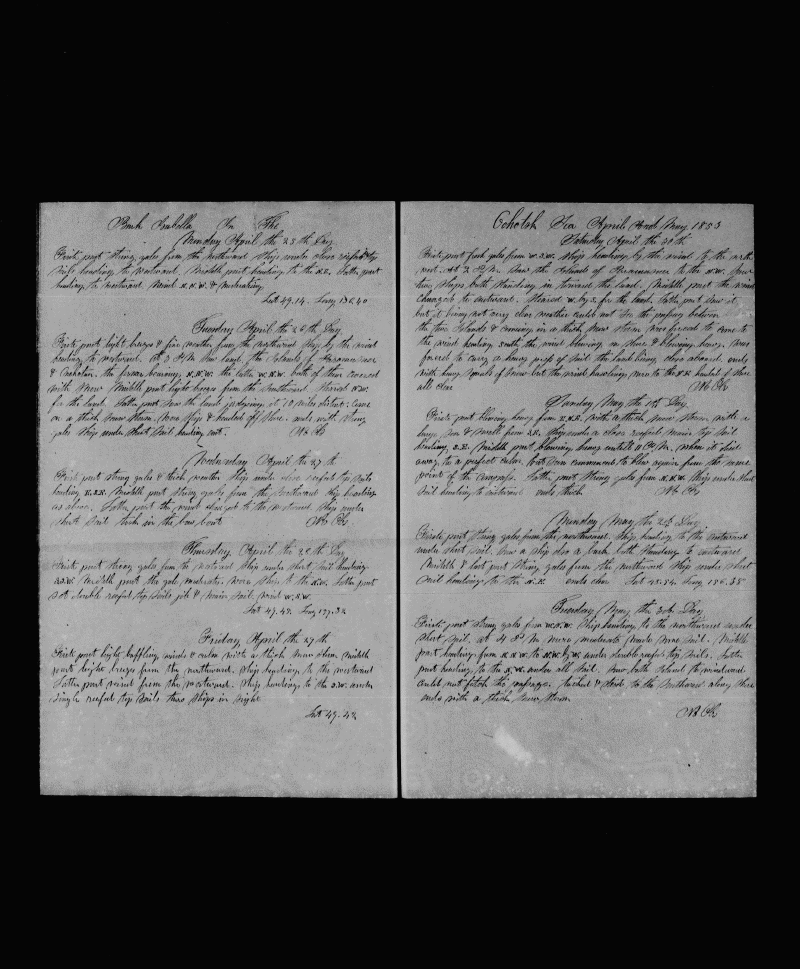 Bark Isabella In The
Monday April the 25th Day
Firsts part strong gales from the northward Ship under close reefed top
sails heading to westward. Middle part heading to the N.E. Latter part
heading to westward Wind N.N.W. & moderating
Lat 49.14. Long 40
Tuesday April the 26th Day
Firsts part light breeze & fine weather from the northward Ship by the wind
heading to westward. at 3 PM saw land, the Islands of
& the former bearing N.N.W. the latter W.N.W. both of them covered
with snow Middle part light breeze from the Southward Steered N.W.
for the land. Latter part saw the land judging at 70 miles distant. Came
on a thick snow storm, wore ship & headed off shore. ends with strong
gales ship under short sail heading
Wednesday April the 27th
Firsts part strong gales & thick weather Ship under close reefed top sails
heading E.N.E. Middle part strong gales from the Northward Ship heading
as above. Latter part the wind changed to the westward Ship under
short sail in the bow boat
Thursday April the 28th Day
Firsts part strong gales from the westward Ship under short sail heading
Middle part the gale moderates, wore ship to the N.W. Latter part
set double reefed top sails, jib & main sail, wind W.N.W.
Lat 49. Long
Friday April the 29th
Firsts part light baffling winds & calm with a thick snow storm Middle
part light breeze from the northward, Ship heading to the westward
Latter part wind from the westward. Ship heading to the S.W. under
single reefed top sails two ships in sight
Lat 49.42
Ochotsk Sea April And May 1853
Saturday April the 30th
Firsts part fresh gales from W.S.W. Ship heading by the wind to the north
west. At 2 P.M. saw the Islands of to the N.W. Saw
two ships both standing in toward the land. Middle part the wind
changed to eastward. Steered W. by S. for the land. Latter part saw it
but it being not very clear weather could not see the passage between
the two Islands & coming in a thick snow storm was forced to come to
the wind heading south, the wind blowing on shore & blowing heavy was
forced to carry a heavy press of sail the land being close aboard. ends
with heavy squalls of snow but the wind hauling more to the N.E. headed of shore
all clear
Sunday May the 1st Day
Firsts part blowing heavy from E.N.E. with a thick snow storm with a
huge sea & swell from S.E. Ship under a close reefed main top sail
heading S.E. Middle part blowing heavy untill 11 P.M. when it died
away to a perfect calm, but soon commenced to blow again from the same
point of the compass. Latter part strong gale from N.N.W. Ship under short
sail heading to eastward ends thick
Monday May the 2d Day
Firsts part strong gales from the northward. Ship heading to the eastward
under short sail. Saw a ship also a bark both standing to eastward
Middle & last part strong gales from the northward ship under short
sail heading to the N.E. ends clear Lat 48.54. Long 154.35
Tuesday May the 3d Day
Firsts part strong gales from W.N.W. Ship heading to the northward under
short sail. at 4 P.M. more moderate made more sail. Middle
part heading from N.N.W. to N.W. by W. under double reefed top sails. Latter
part heading to the N.W. under all sail. Saw both Island to windward
could not fetch the passage. tacked & stood to the Southward along shore
ends with a thick snow storm